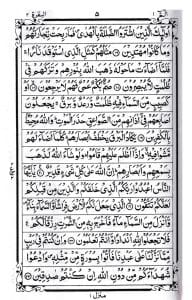 البقرة ٢ ٥ الم ١
اُولٰٓئِكَ الَّذِيْنَ اشْتَرَوُا الضَّلٰلَةَ بِالْهُدٰى فَمَا رَبِحَتْ تِّجَارَتُهُمْ
وَمَا كَانُوْا مُهْتَدِيْنَ ۝ مَثَلُهُمْ كَمَثَلِ الَّذِى اسْتَوْقَدَ نَارًا
فَلَمَّآ اَضَآءَتْ مَا حَوْلَهٗ ذَهَبَ اللّٰهُ بِنُوْرِهِمْ وَتَرَكَهُمْ فِيْ
ظُلُمٰتٍ لَّا يُبْصِرُوْنَ ۝ صُمٌّۢ بُكْمٌ عُمْيٌ فَهُمْ لَا يَرْجِعُوْنَ ۝ اَوْ
كَصَيِّبٍ مِّنَ السَّمَآءِ فِيْهِ ظُلُمٰتٌ وَّرَعْدٌ وَّبَرْقٌ يَجْعَلُوْنَ
اَصَابِعَهُمْ فِيْٓ اٰذَانِهِمْ مِّنَ الصَّوَاعِقِ حَذَرَ الْمَوْتِ وَاللّٰهُ مُحِيْطٌۢ
بِالْكٰفِرِيْنَ ۝ يَكَادُ الْبَرْقُ يَخْطَفُ اَبْصَارَهُمْ كُلَّمَآ اَضَآءَ
لَهُمْ مَّشَوْا فِيْهِ وَاِذَآ اَظْلَمَ عَلَيْهِمْ قَامُوْا وَلَوْ شَآءَ اللّٰهُ لَذَهَبَ
بِسَمْعِهِمْ وَاَبْصَارِهِمْ اِنَّ اللّٰهَ عَلٰى كُلِّ شَيْءٍ قَدِيْرٌ ۝ يٰٓاَيُّهَا
النَّاسُ اعْبُدُوْا رَبَّكُمُ الَّذِيْ خَلَقَكُمْ وَالَّذِيْنَ مِنْ قَبْلِكُمْ
لَعَلَّكُمْ تَتَّقُوْنَ ۝ الَّذِيْ جَعَلَ لَكُمُ الْاَرْضَ فِرَاشًا وَّالسَّمَآءَ بِنَآءً
وَّاَنْزَلَ مِنَ السَّمَآءِ مَآءً فَاَخْرَجَ بِهٖ مِنَ الثَّمَرٰتِ رِزْقًا لَّكُمْ
فَلَا تَجْعَلُوْا لِلّٰهِ اَنْدَادًا وَّاَنْتُمْ تَعْلَمُوْنَ ۝ وَاِنْ كُنْتُمْ فِيْ
رَيْبٍ مِّمَّا نَزَّلْنَا عَلٰى عَبْدِنَا فَاْتُوْا بِسُوْرَةٍ مِّنْ مِّثْلِهٖ وَادْعُوْا
شُهَدَآءَكُمْ مِّنْ دُوْنِ اللّٰهِ اِنْ كُنْتُمْ صٰدِقِيْنَ ۝
منزل ١